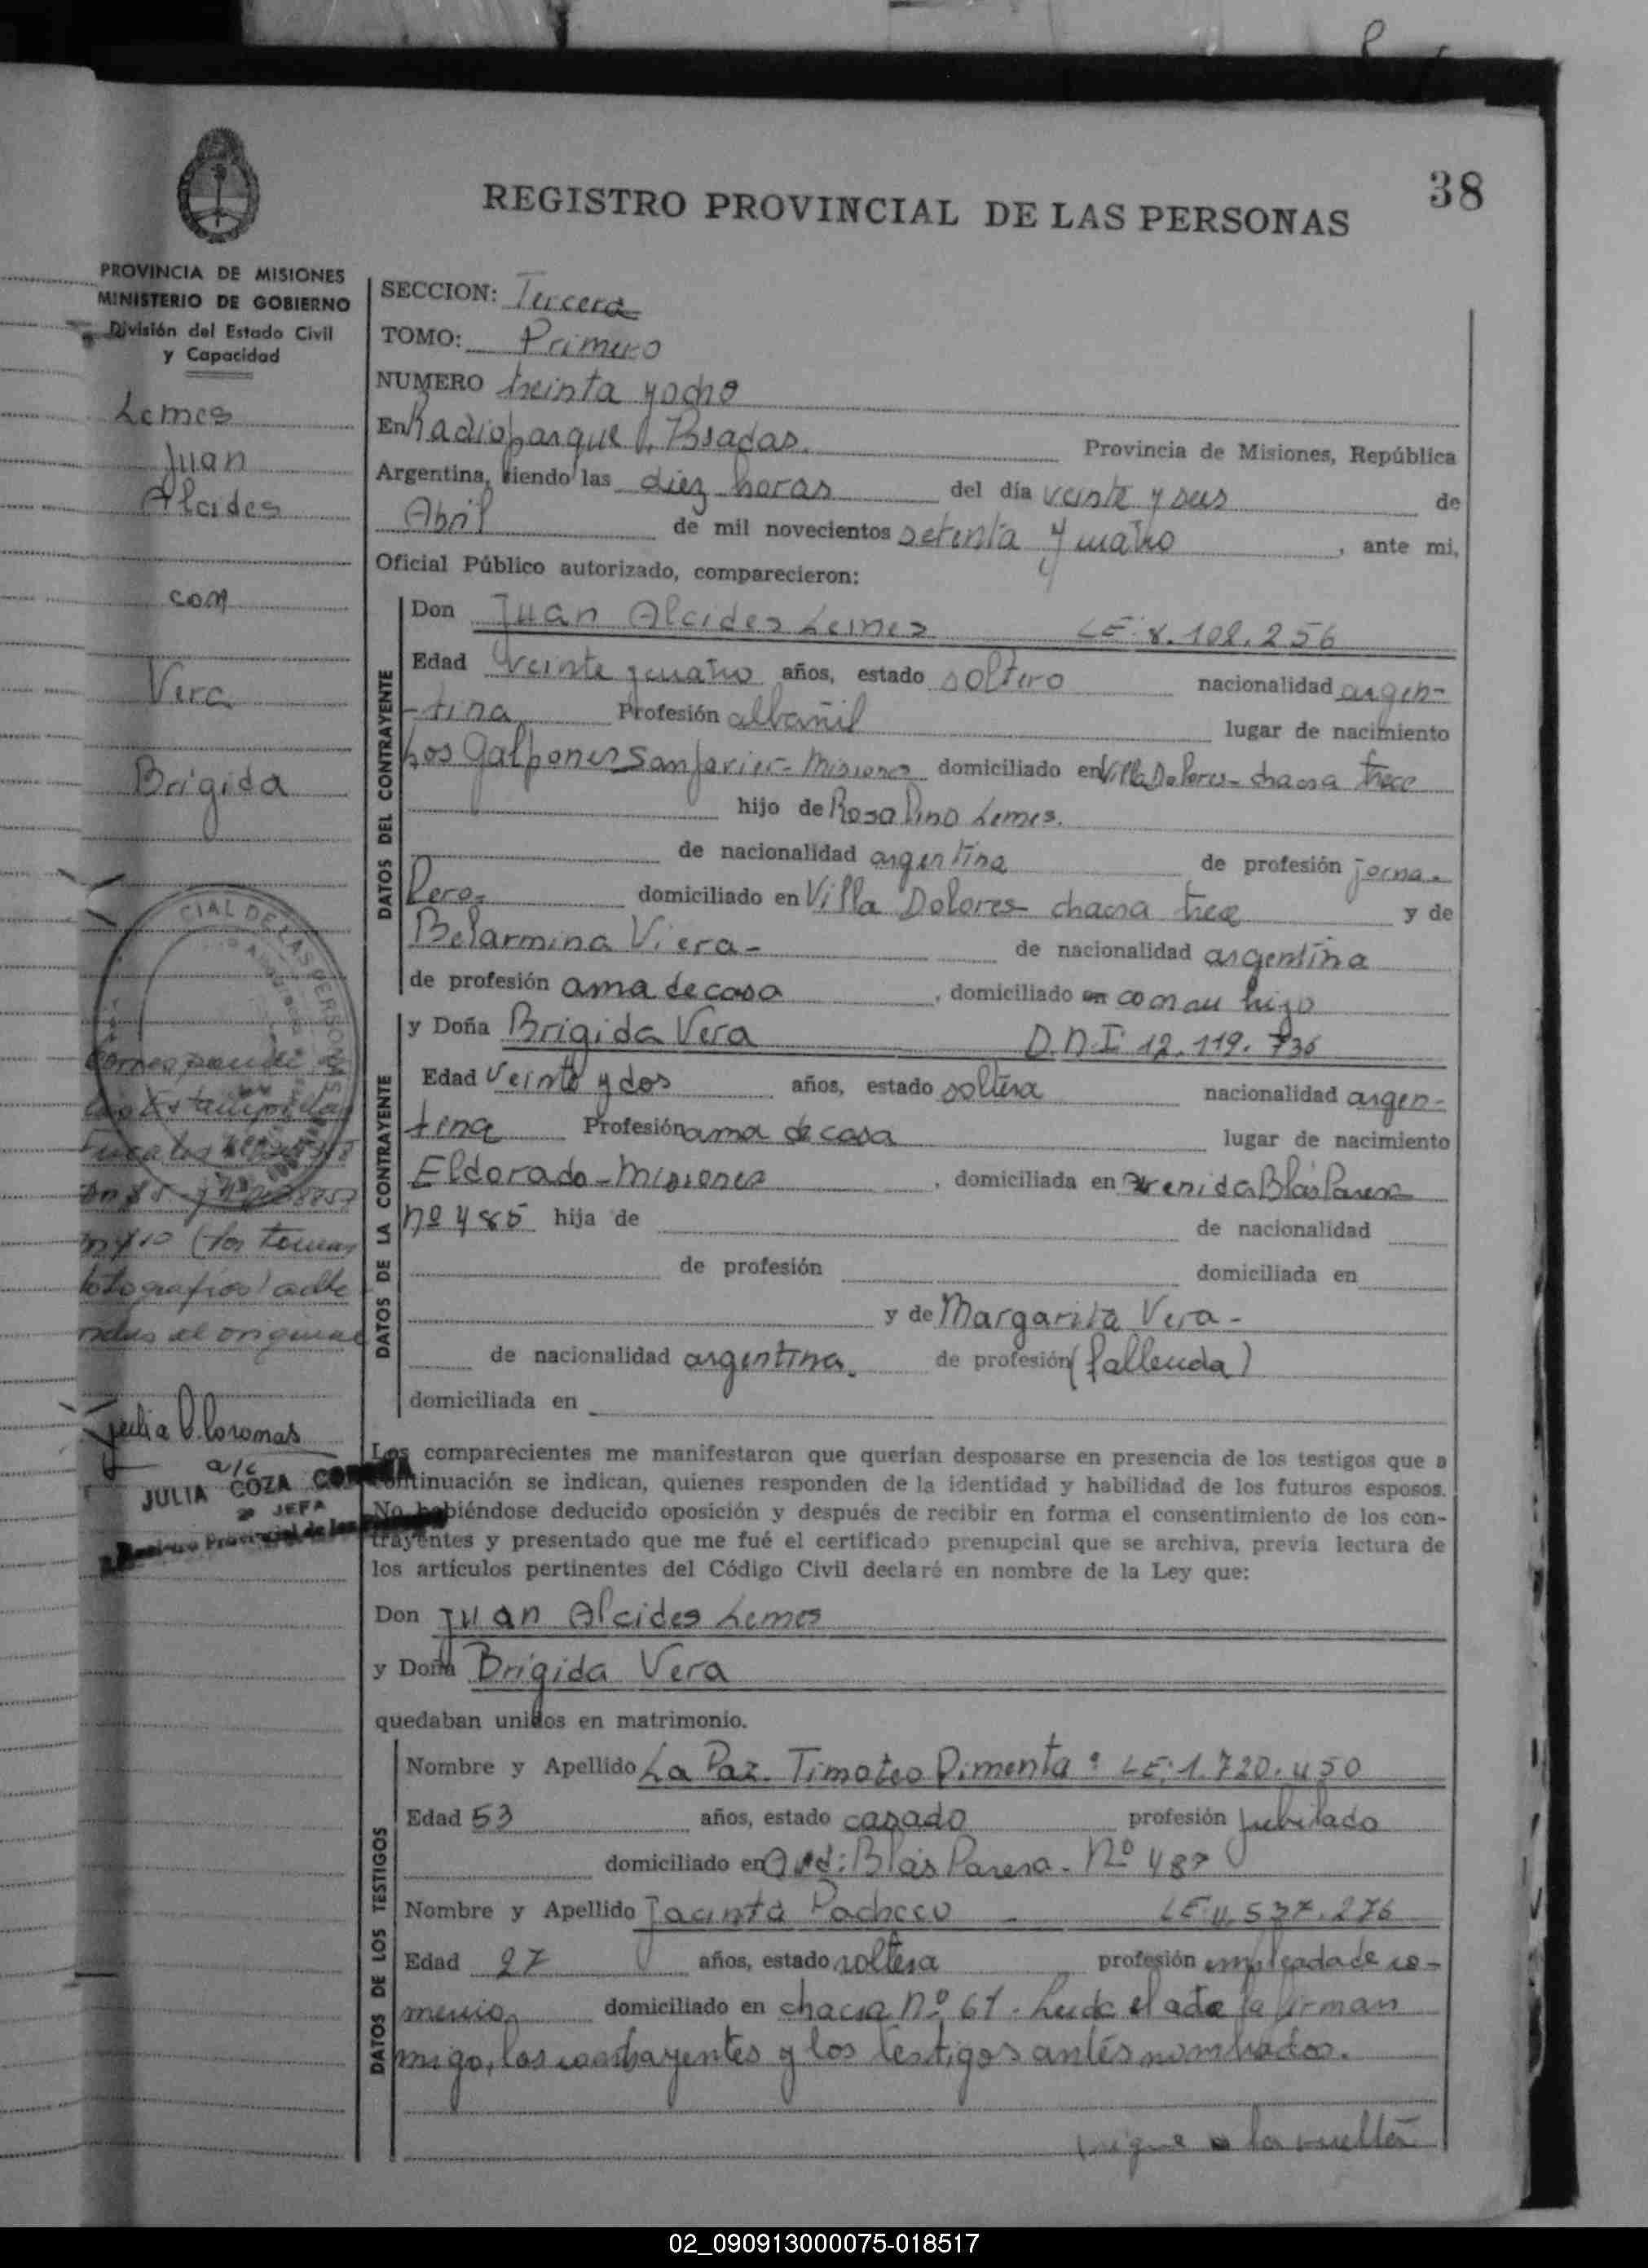 38
REGISTRO PROVINCIAL DE LAS PERSONAS
PROVINCIA DE MISIONES
MINISTERIO DE GOBIERNO
División del Estado Civil
y Capacidad
Lemes
Juan
Alcides
con
Vera
Brigida
Corresponde a
las Estampillas
Fiscales
(los temas
fotografias) adhe
ridas al original
a/c
JULIA COZA
JEFA
SECCION: Tercera
TOMO: Primero
NUMERO treinta y ocho
En Radioparque P. Posadas. Provincia de Misiones, República
Argentina, siendo las diez horas del día veinte y seis de
Abril de mil novecientos setenta y cuatro, ante mi,
Oficial Público autorizado, comparecieron:
DATOS DEL CONTRAYENTE
Don Juan Alcides Lemes LE: 8.108.256
Edad veinte y cuatro años, estado soltero nacionalidad argen-
-tina Profesión albañil lugar de nacimiento
Los Galpones San Javier - Misiones domiciliado en Villa Dolores - chacra trece
hijo de Rosalino Lemes.
de nacionalidad argentina de profesión jorna-
lero. domiciliado en Villa Dolores chacra trece y de
Belarmina Viera - de nacionalidad argentina
de profesión ama de casa, domiciliado en con su hijo
DATOS DE LA CONTRAYENTE
y Doña Brigida Vera D.N.I 12.119.736
Edad Veinte y dos años, estado soltera nacionalidad argen-
tina Profesión ama de casa lugar de nacimiento
Eldorado - Misiones, domiciliada en Avenida Blás Parera
nº 485 hija de de nacionalidad
de profesión domiciliada en
y de Margarita Vera -
de nacionalidad argentina. de profesión (fallecida)
domiciliada en
Los comparecientes me manifestaron que querían desposarse en presencia de los testigos que a
continuación se indican, quienes responden de la identidad y habilidad de los futuros esposos.
No habiéndose deducido oposición y después de recibir en forma el consentimiento de los con-
trayentes y presentado que me fué el certificado prenupcial que se archiva, previa lectura de
los artículos pertinentes del Código Civil declaré en nombre de la Ley que:
Don Juan Alcides Lemes
y Doña Brigida Vera
quedaban unidos en matrimonio.
DATOS DE LOS TESTIGOS
Nombre y Apellido La Paz. Timoteo Pimenta: LE: 1.720.450
Edad 53 años, estado casado profesión jubilado
domiciliado en Avd: Blás Parera - Nº 487
Nombre y Apellido Jacinta Pacheco LE: 4.537.276
Edad 27 años, estado soltera profesión empleada de co-
mercio, domiciliado en chacra Nº 61. Leida el acta la firman
migo, los contrayentes y los testigos antes nombrados.
sigue a la vuelta
02_090913000075-018517